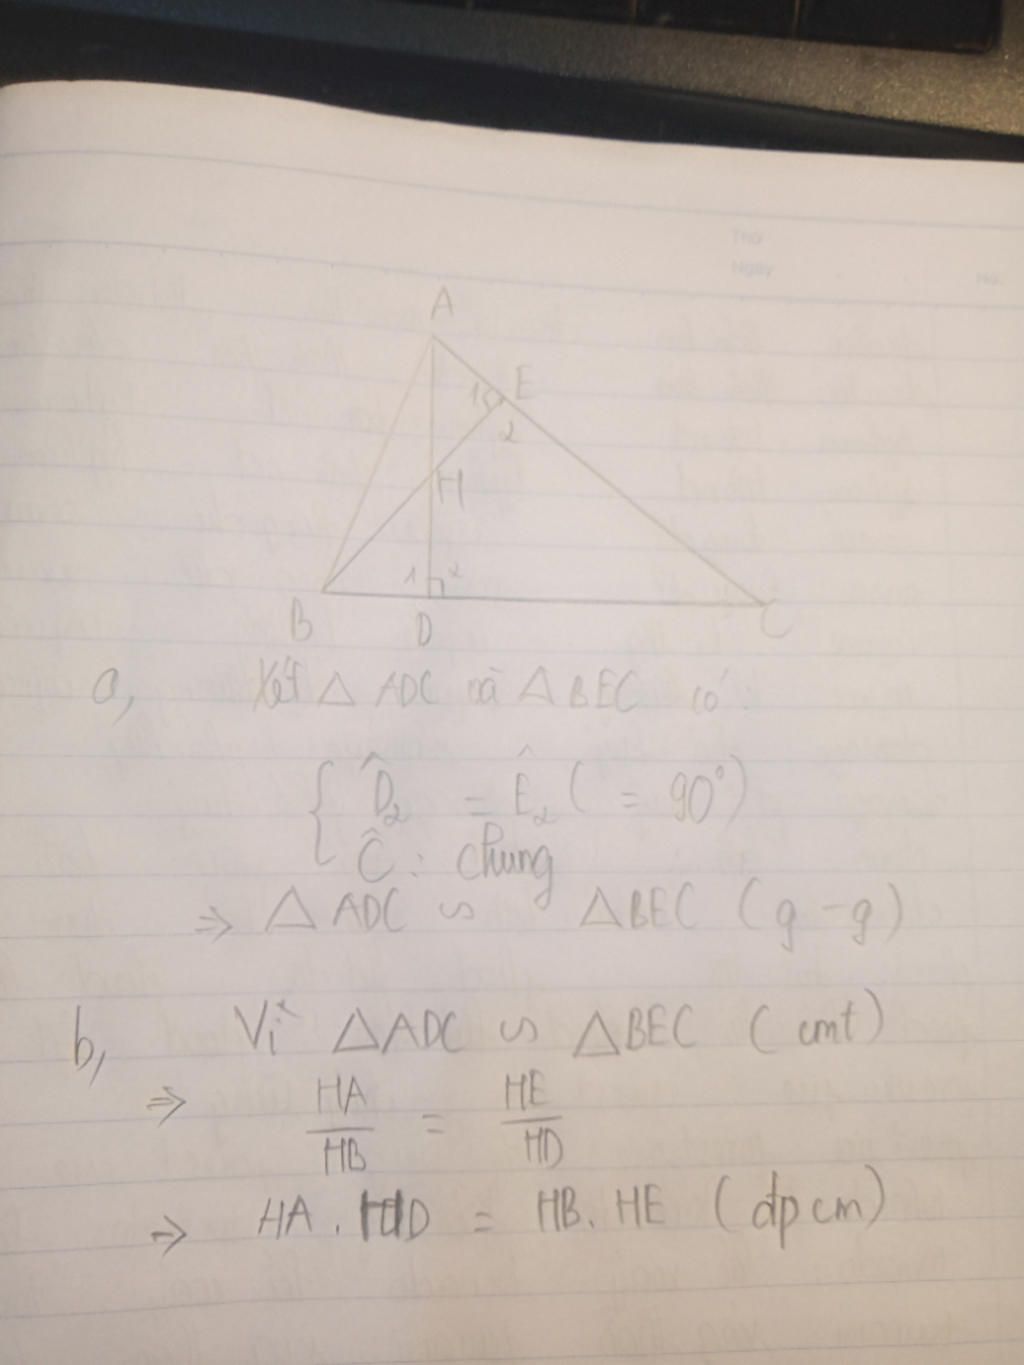 Thứ
Ngày
No.
A
1 E
2
H
1 2
B D C
a, Xét △ ADC và △ BEC có:
{ D̂₂ = Ê₂ ( = 90°)
Ĉ : chung
⇒ △ ADC ∽ △BEC (g - g)
b, Vì △ADC ∽ △BEC (cmt)
⇒ HA/HB = HE/HD
⇒ HA . HD = HB. HE (đpcm)